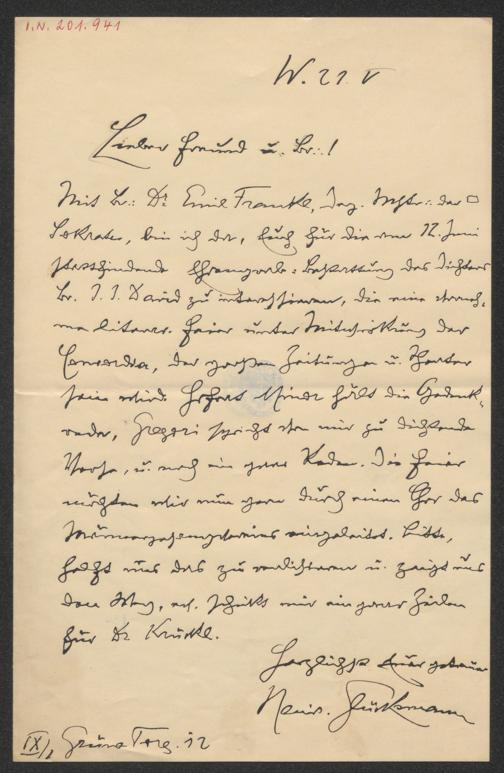 I.N. 201.941
W. 21. V
Lieber Freund u. Br.: !
Mit Br.: Dr Emil Frankl, Mstr.: der □
Sokrates, bin ich der, Euch für die am 12. Juni
stattfindende Ehrengrab-Bestattung des Dichters
Br. J. J. David zu interessieren, die eine
literar. Feier unter Mitwirkung der
Concordia, der großen Zeitungen u. Theater
sein wird. Hofrat Minor hält die Gedenk-
rede, Gregori spricht von mir zu dichtende
Verse, u. noch ein paar Reden. Die Feier
möchten wir nun gern durch einen Chor des
Männergesangvereins eingeleitet. Bitte,
helft uns das zu u. zeigt uns
den Weg, ev. schickt mir ein paar Zeilen
für Dr Krückl.
Herzlichst Euer getreuer
Heinr. Glücksmann
IX/1 Grüne Torg. 12